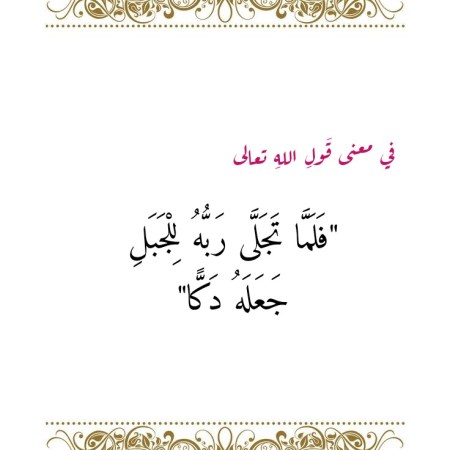 في معنى قَولِ اللهِ تعالى
"فَلَمَّا تَجَلَّى رَبُّهُ لِلْجَبَلِ
جَعَلَهُ دَكًّا"